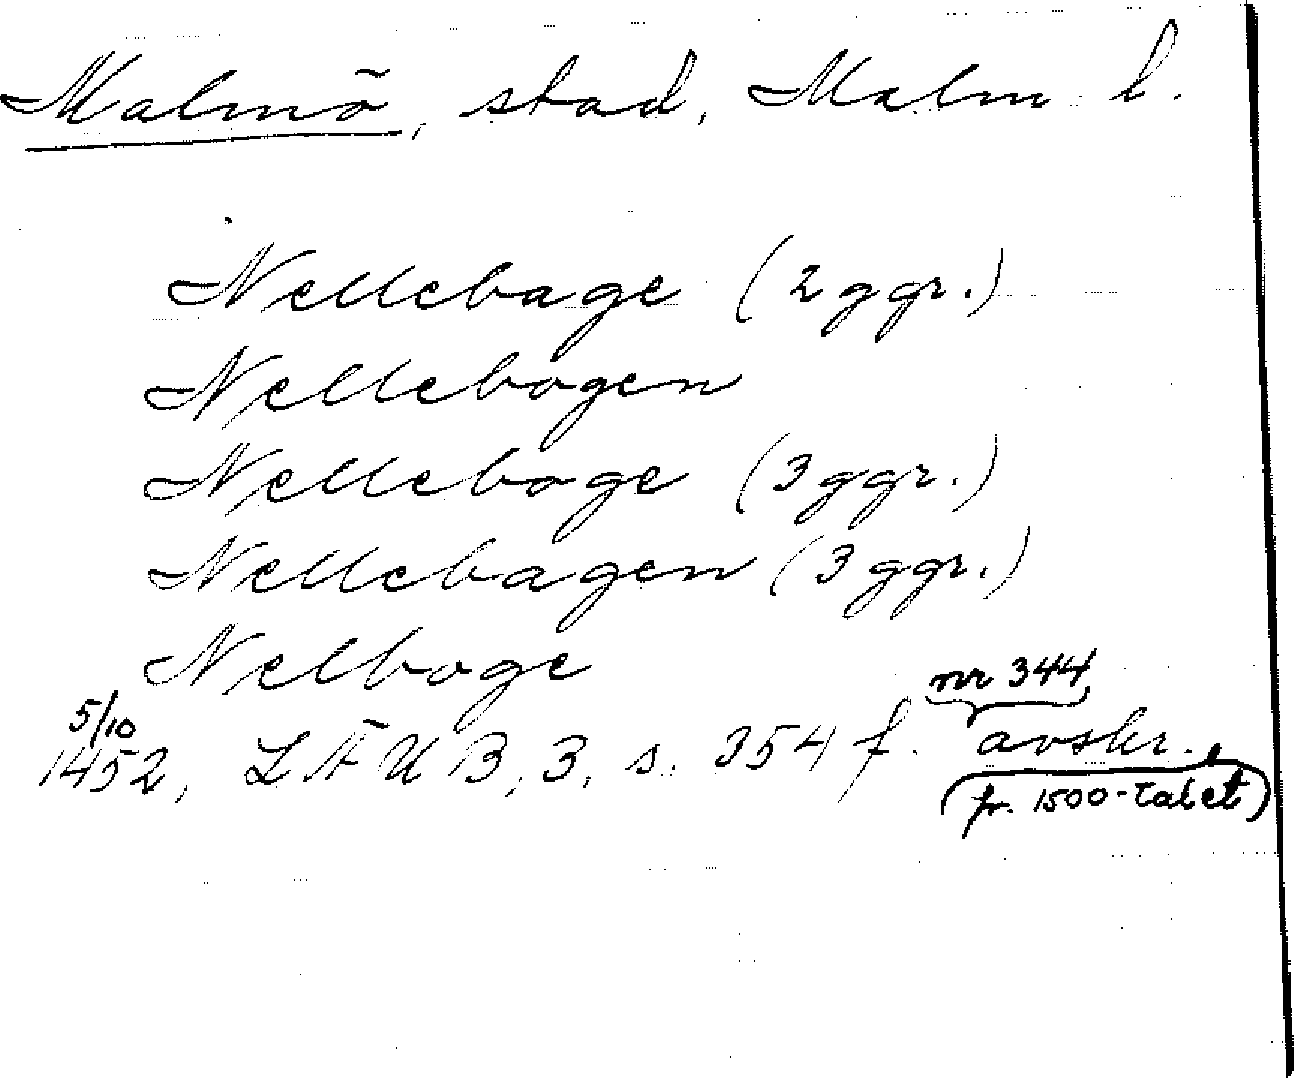 Malmö, stad, Malm. l.
Nellebage (2 ggr.)
Nellebogen
Nelleboge (3 ggr.)
Nellebagen (3 ggr.)
Nelboge
5/10 1452, LÄUB, 3, s. 354 f. nr 344, avskr.,
(fr. 1500-talet)